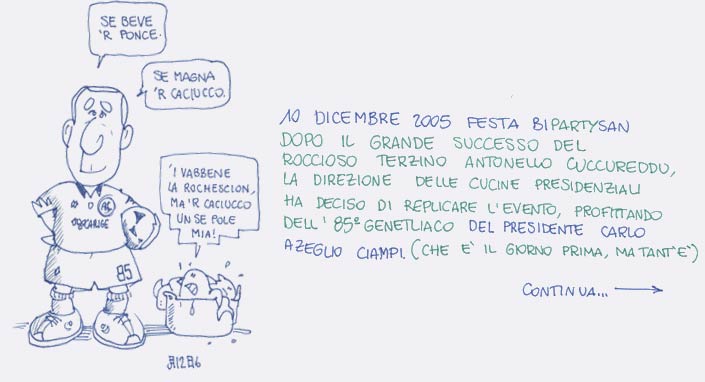 SE BEVE
'R PONCE.
SE MAGNA
'R CACIUCCO.
'I VABBENE
LA ROCHESCION,
MA 'R CACIUCCO
UN SE POLE
MIA!
85
10 DICEMBRE 2005 FESTA BIPARTYSAN
DOPO IL GRANDE SUCCESSO DEL
ROCCIOSO TERZINO ANTONELLO CUCCUREDDU,
LA DIREZIONE DELLE CUCINE PRESIDENZIALI
HA DECISO DI REPLICARE L'EVENTO, PROFITTANDO
DELL'85º GENETLIACO DEL PRESIDENTE CARLO
AZEGLIO CIAMPI. (CHE E' IL GIORNO PRIMA, MA TANT'E')
CONTINUA...